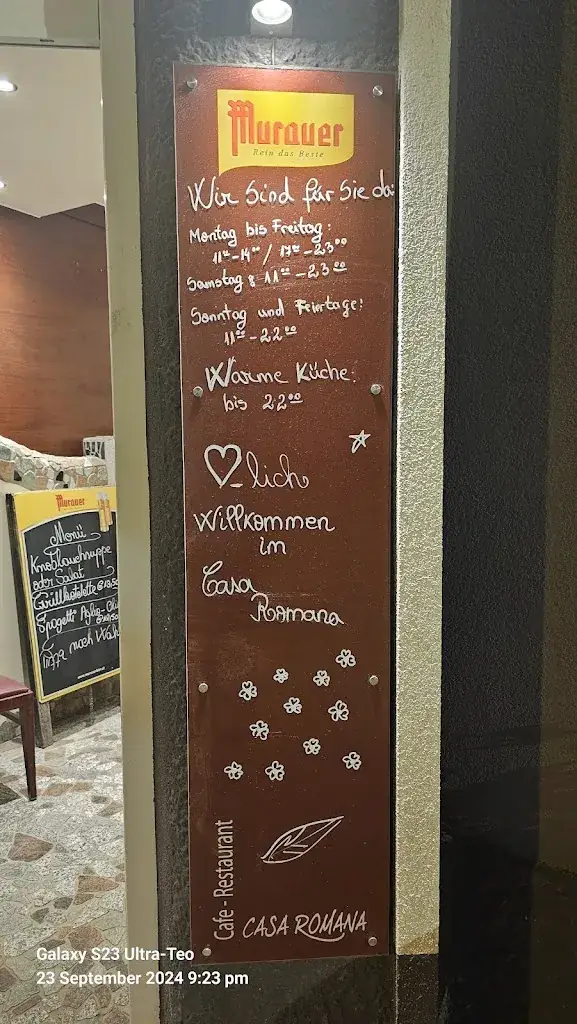 Murauer
Rein das Beste
Wir Sind für Sie da:
Montag bis Freitag:
11⁰⁰-14⁰⁰ / 17⁰⁰-23⁰⁰
Samstag: 11⁰⁰-23⁰⁰
Sonntag und Feiertage:
11⁰⁰-22⁰⁰
Warme Küche:
bis 22⁰⁰
♡lich
Willkommen
im
Casa
Romana
Cafe - Restaurant
CASA ROMANA
Murauer
Menü
Knoblauchsuppe
oder Salat
Grillkotelette
Spagetti Aglio-Oli
Pizza nach Wahl
Galaxy S23 Ultra-Teo
23 September 2024 9:23 pm